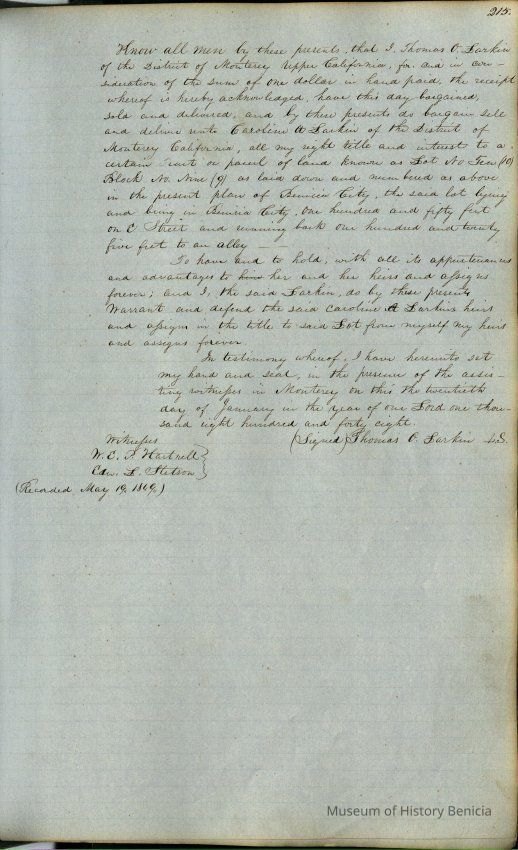 215.
Know all men by these presents, that I, Thomas O. Larkin
of the District of Monterey Upper California, for and in con-
sideration of the sum of one dollar in hand paid, the receipt
whereof is hereby acknowledged, have this day bargained,
sold and delivered, and by these presents do bargain sell
and deliver unto Caroline A Larkin of the District of
Monterey California, all my right title and interests to a
certain tract or parcel of land known as Lot No Ten (10)
Block No. Nine (9) as laid down and numbered as above
in the present plan of Benicia City, the said lot lying
and being in Benicia City, One hundred and fifty feet
on C Street and running back one hundred and twenty
five feet to an alley
To have and to hold, with all its appurtenances
and advantages to him her and her heirs and assigns
forever; and I, the said Larkin, do by these presents
Warrant and defend the said Caroline A Larkins heirs
and assigns in the title to said Lot from myself my heirs
and assigns forever.
In testimony whereof, I have hereunto set
my hand and seal, in the presence of the assis-
ting witnesses in Monterey on this the twentieth
day of January in the year of our Lord one thou-
sand eight hundred and forty eight.
Witnesses (Signed) Thomas O. Larkin L.S.
W. E. P. Hartnell
Edw. L. Stetson
(Recorded May 19, 1849,)
Museum of History Benicia